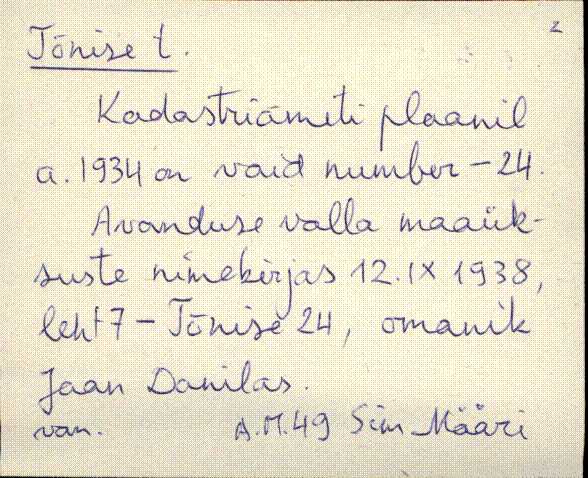 2
Tõnise t.
Kadastriameti plaanil
a. 1934 on vaid number - 24.
Avanduse valla maaük-
suste nimekirjas 12.IX 1938,
leht 7 - Tõnise 24, omanik
Jaan Danilas.
van. A.M.49 Sim Määri